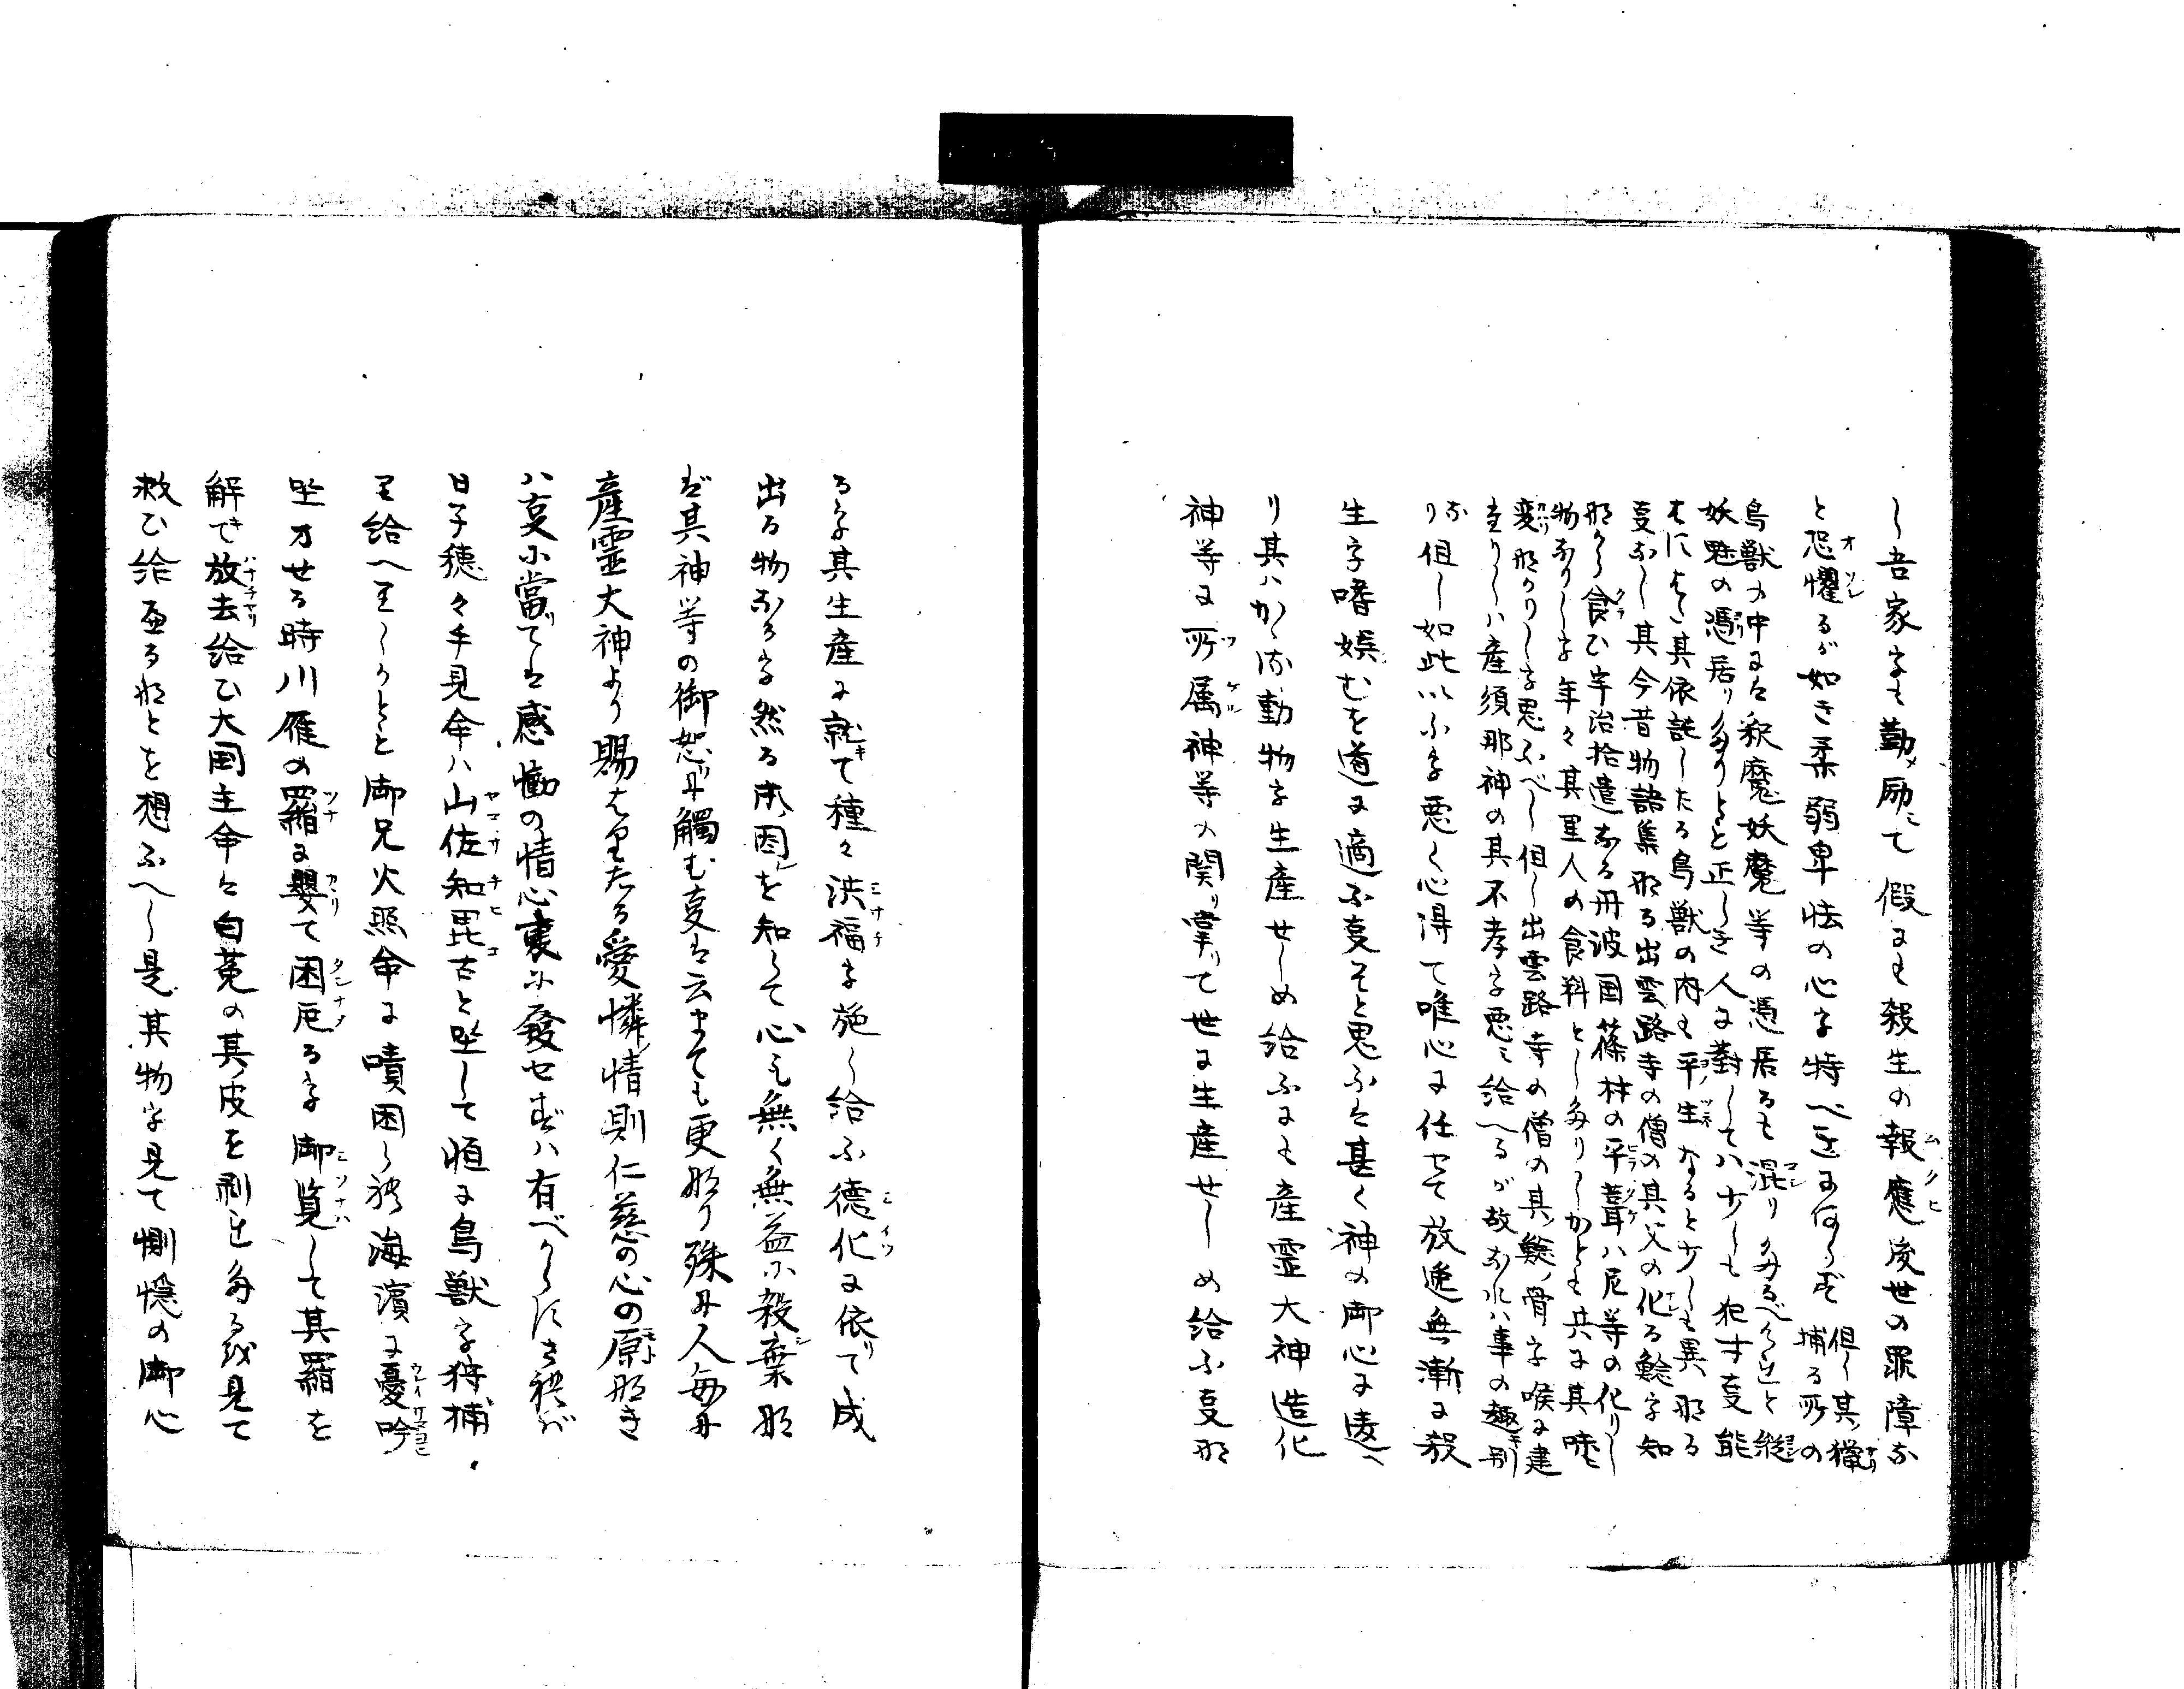 し吾家をも勤励て假にも殺生の報應後世の罪障な
と恐懼るが如き柔弱卑怯の心を特べきに何らず
但し其獵
捕る所の
鳥獸の中には釈魔妖魔等の憑居るも混りあるべけれと縦
妖魅の憑居りありとも正しき人に對しては少しも犯す事能
はにはし其依託したる鳥獸の肉も平生なると少しも異れる
事なし其今昔物語集なる出雲路寺の僧の其父の化る鯰を知
ながら食ひ宇治拾遺なる丹波国篠村の平茸ハ尼等の化りし
物なりしを年々其里人の食料としありしかとも共に其味も
変なかりしを思ふべし但し出雲路寺の僧の其鯰ノ骨を喉に建
たりしハ産須那神の其不孝を悪ミ給へるが故なれハ事の趣別
なり但し如此いふを悪く心得て唯心に任せて放逸無漸に殺
生を嗜娯むを道に適ふ事そと思ふは甚く神の御心に違へ
り其ハかゝる動物を生産せしめ給ふにも産霊大神造化
神等に所属神等の関り掌て世に生産せしめ給ふ事な
るを其生産に就て種々洪福を施し給ふ德化に依て成
出る物なるを然る本因を知らて心も無く無益に殺棄な
ば其神等の御怒に觸む事は云まても更なり殊に人毎に
産霊大神より賜はりたる愛憐情則仁慈の心の原なき
ハ事に當ては感慟の情心裏に發せずハ有べからにされば
日子穂々手見命ハ山佐知毘古と坐して恒に鳥獸を狩捕
り給へりしかとも御兄火照命に嘖困られ海濱に憂吟
坐ませる時川雁の羅に嬰て困厄るを御覧して其羅を
解て放去給ひ大国主命は白菟の其皮を剥れたるを見て
救ひ給へるなとを想ふへし是其物を見て惻憶の御心